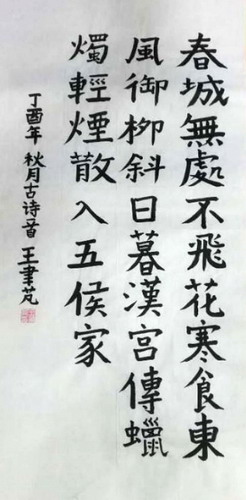 春城無處不飛花寒食東
風御柳斜日暮漢宮傳蠟
燭輕煙散入五侯家
丁酉年 秋月古诗首 王